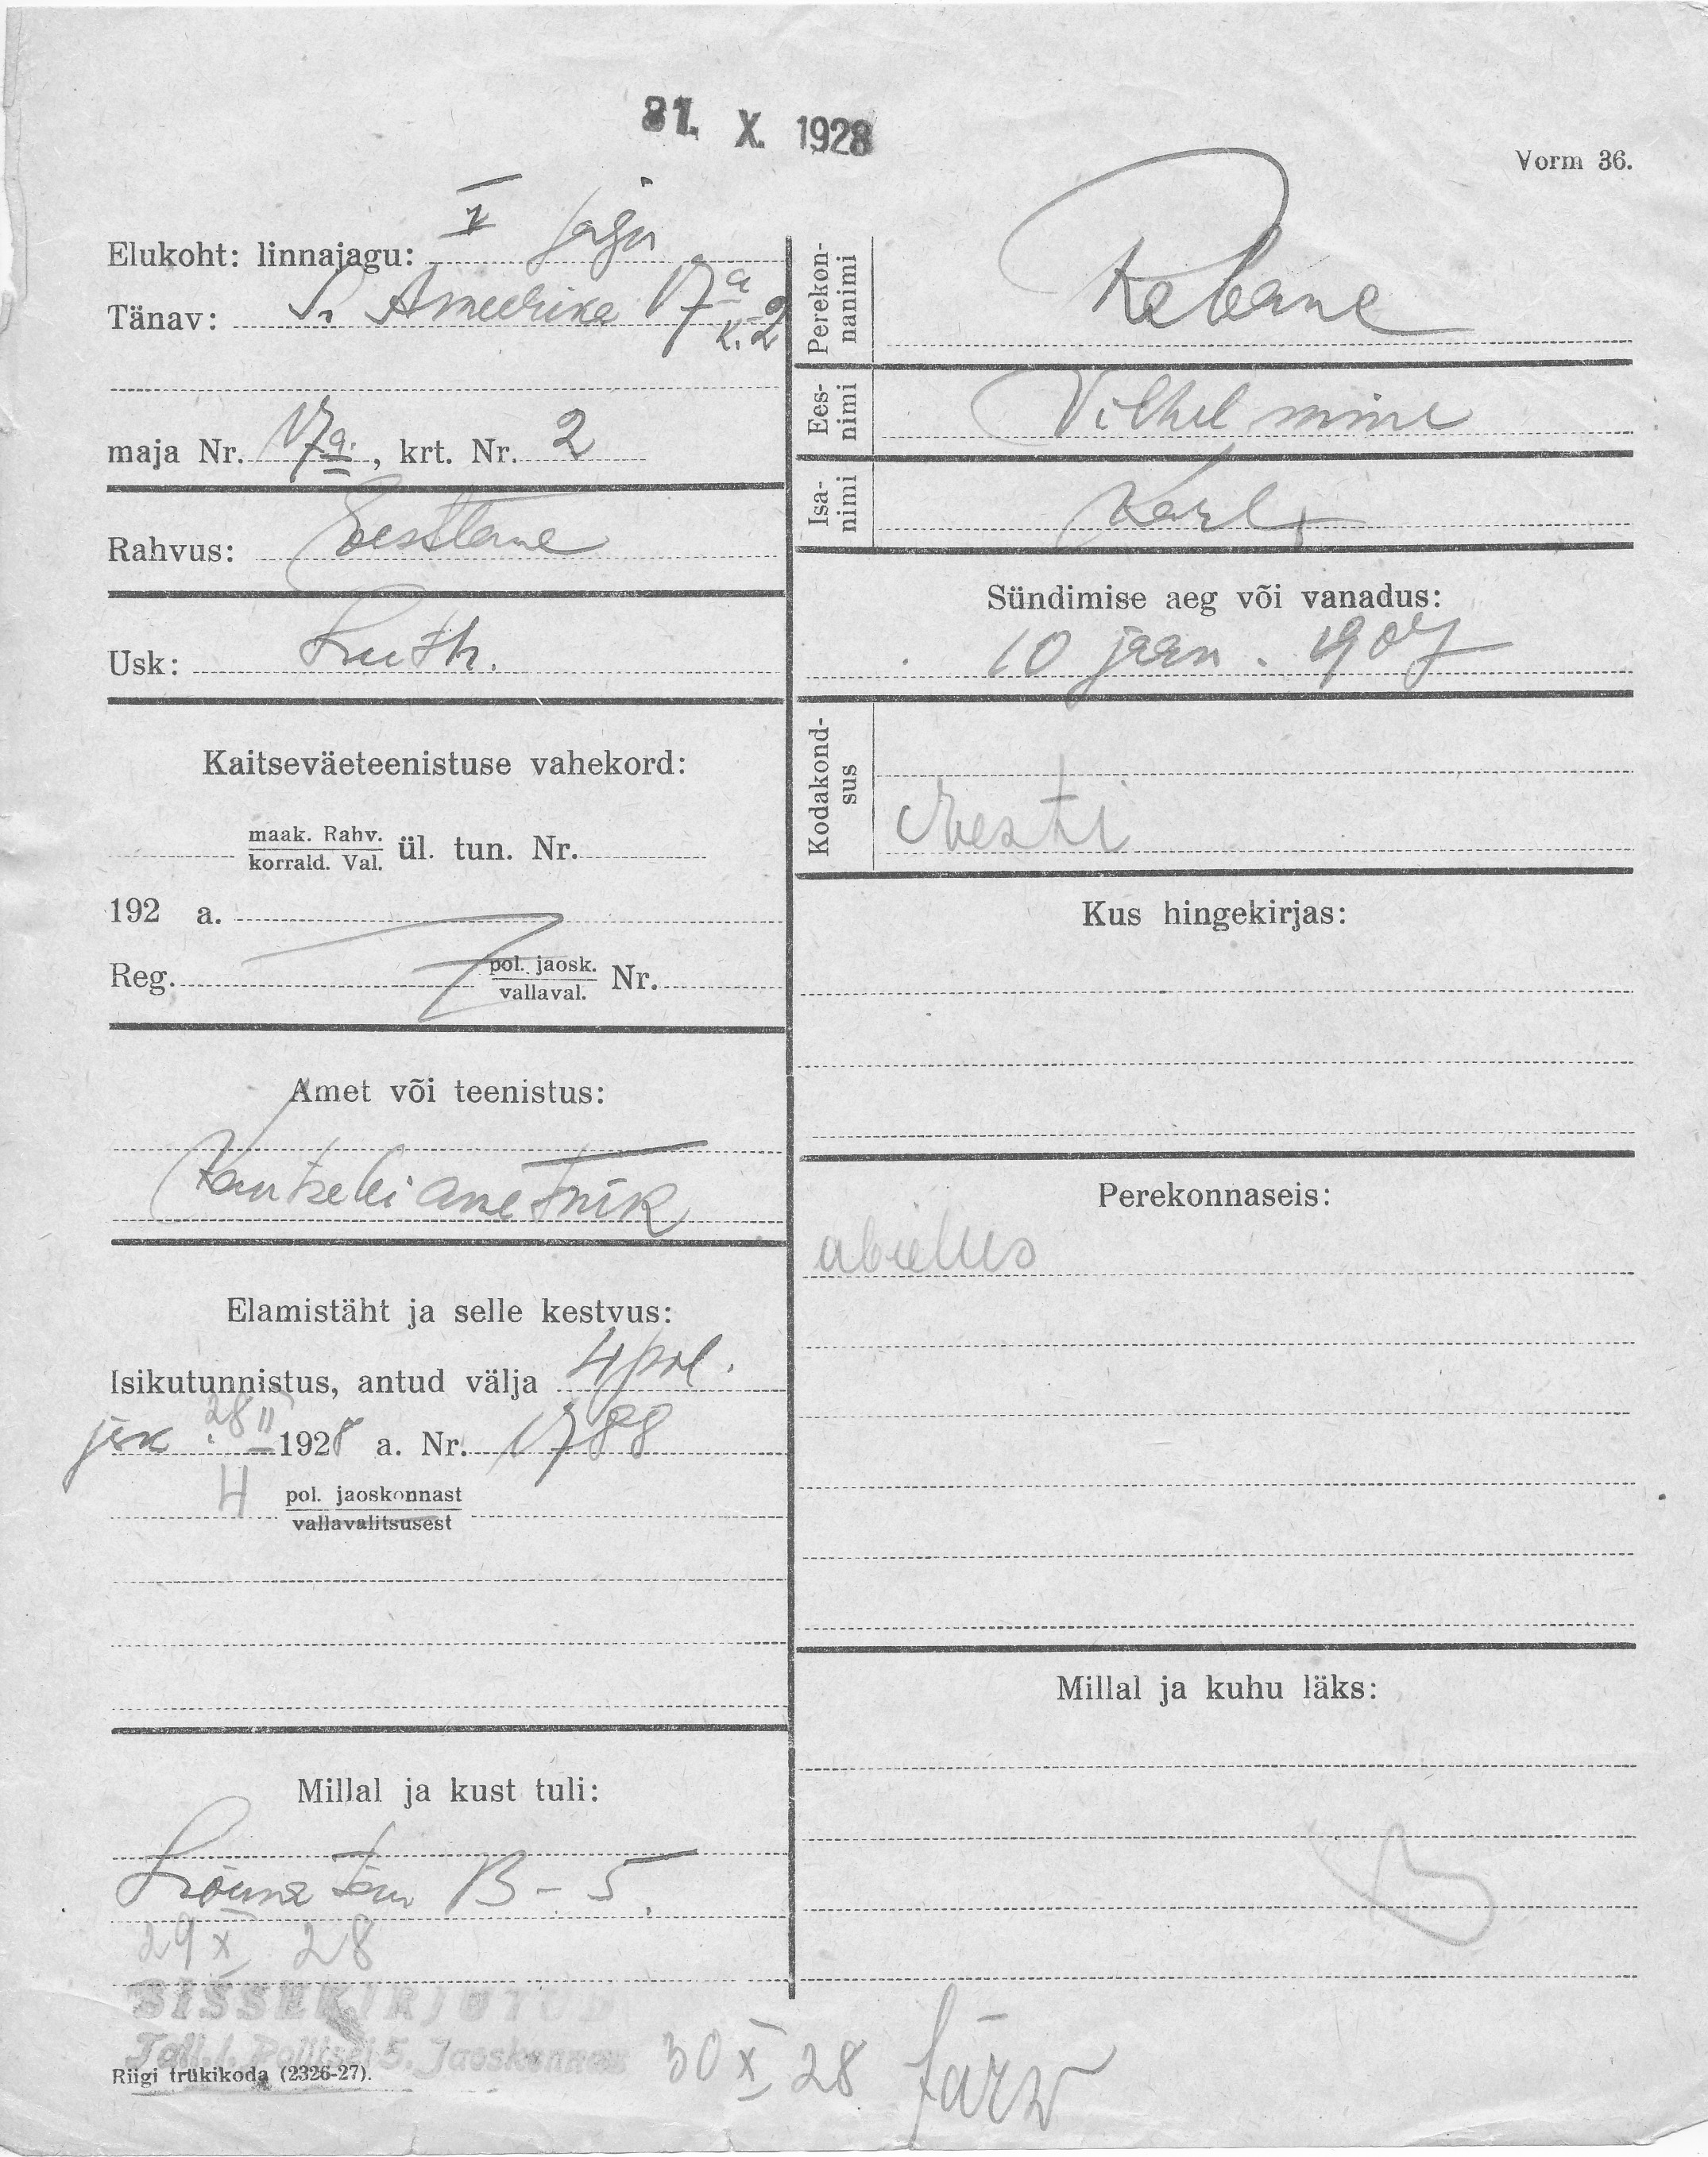 31. X. 1928
Vorm 36.
Elukoht: linnajagu: V jagu
Tänav: S. Ameerika 17a
k. 2
maja Nr. 17a, krt. Nr. 2
Rahvus: Eestlane
Usk: Luth.
Kaitseväeteenistuse vahekord:
maak. Rahv.
korrald. Val. ül. tun. Nr.
192 a.
Reg. pol. jaosk.
vallaval. Nr.
Amet või teenistus:
Kantselei ametnik
Elamistäht ja selle kestvus:
Isikutunnistus, antud välja 4 pol.
jsk 28 II 1928 a. Nr. 1788
4 pol. jaoskonnast
vallavalitsusest
Millal ja kust tuli:
Lõuna tän B-5.
29 X 28
SISSEKIRJUTUD
Tall. l. Politsei 5. Jaoskonnas
Riigi trükikoda (2326-27).
Perekon-
nanimi
Rebane
Ees-
nimi
Vilhelmine
Isa-
nimi
Karl
Sündimise aeg või vanadus:
10 jaan. 1907
Kodakond-
sus
Eesti
Kus hingekirjas:
Perekonnaseis:
abielus
Millal ja kuhu läks:
30 X 28 Järv